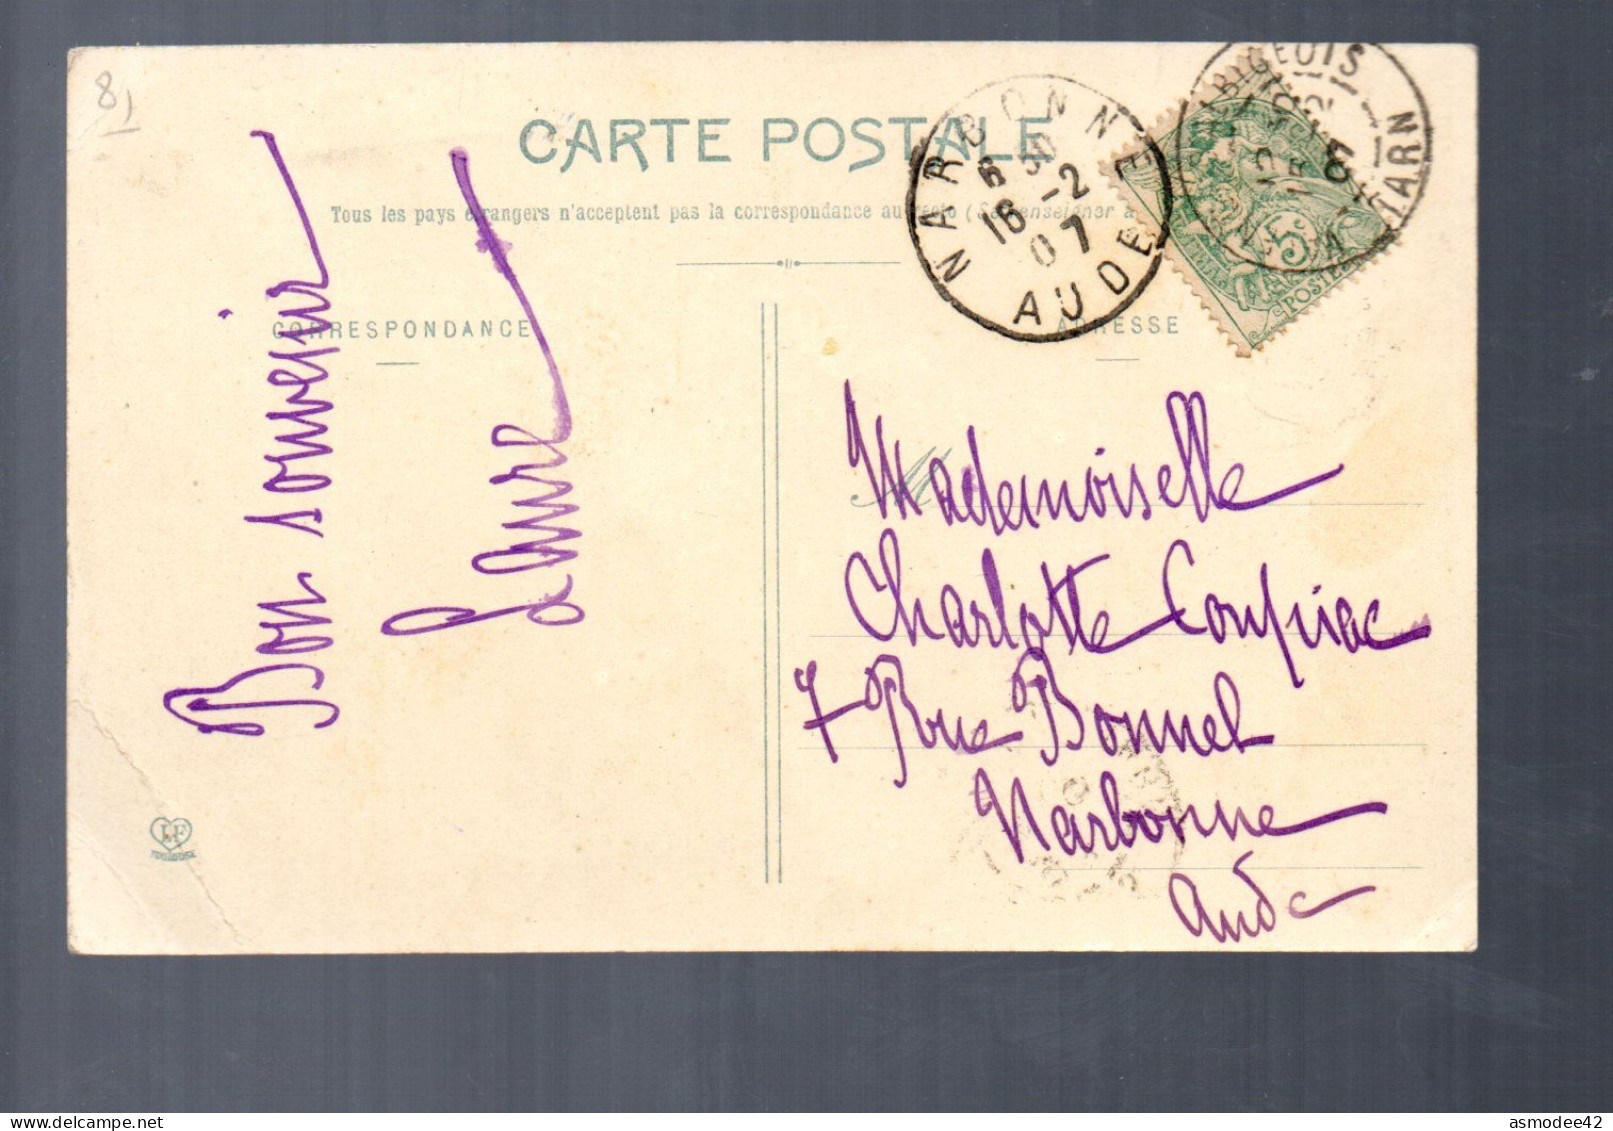 8
CARTE POSTALE
Tous les pays étrangers n'acceptent pas la correspondance au recto (Se renseigner à
CORRESPONDANCE
ADRESSE
NARBONNE
6 30
16 -2
07
AUDE
TARN
5c
POSTES
Bon souvenir
Laure
Mademoiselle
Charlotte Coupiac
7 Rue Bonnel
Narbonne
Aude
TOULOUSE
asmodee42